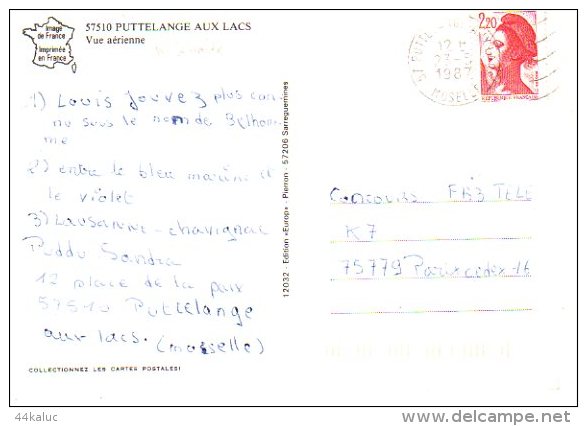 Image
de France
Imprimée
en France
57510 PUTTELANGE AUX LACS
Vue aérienne
1) Louis Jouvez plus con
nu sous le nom de Belhom
me
2) entre le bleu marine et
le violet
3) Lausanne - chavignac
Puddu Sandra
12 place de la paix
57510 Puttelange
aux-lacs. (moselle)
COLLECTIONNEZ LES CARTES POSTALES!
12032 - Edition «Europ» - Pierron - 57206 Sarreguemines
2,20
1987
MOSEL
Concours FR3 TELE
K7
75779 Paris cedex 16
44kaluc
delcampe.net